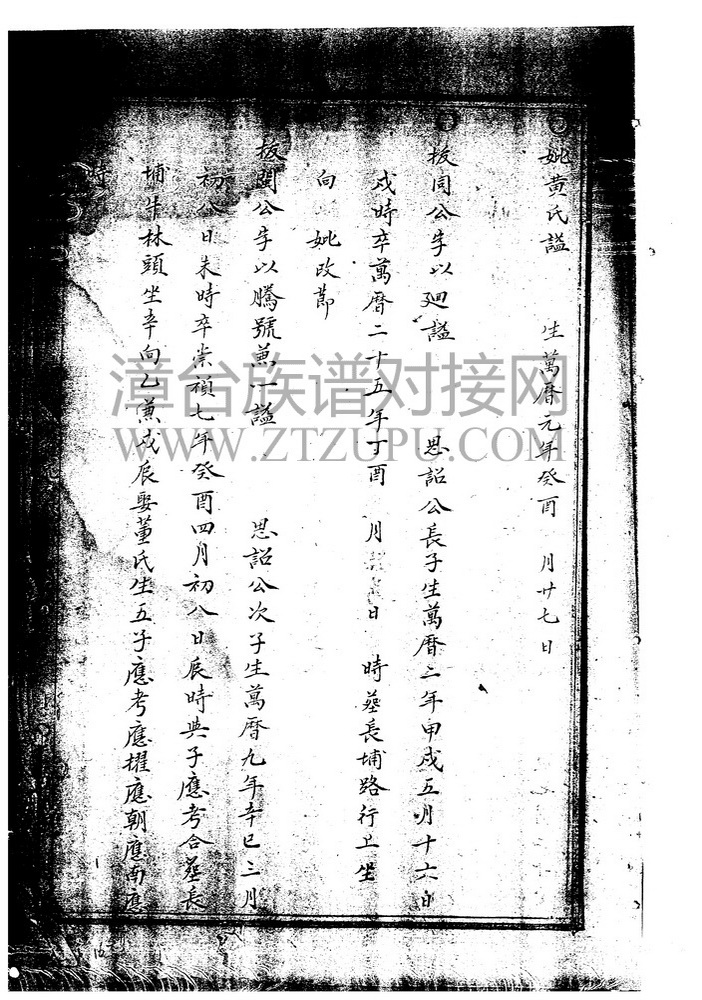 妣黃氏謚 生萬曆元年癸酉 月廿七日
振同公字以廻謚 思詔公長子生萬曆二年甲戌五月十六日
戌時卒萬曆二十五年丁酉 月 日 時葬長埔路行上坐
向 妣改節
振開公字以騰號兼一謚 思詔公次子生萬曆九年辛巳三月
初八日未時卒崇禎七年癸酉四月初八日辰時與子應考合葬長
埔牛林頭坐辛向乙兼戌辰娶董氏生五子應考應擢應朝應南應
時
漳台族谱对接网
WWW.ZTZUPU.COM